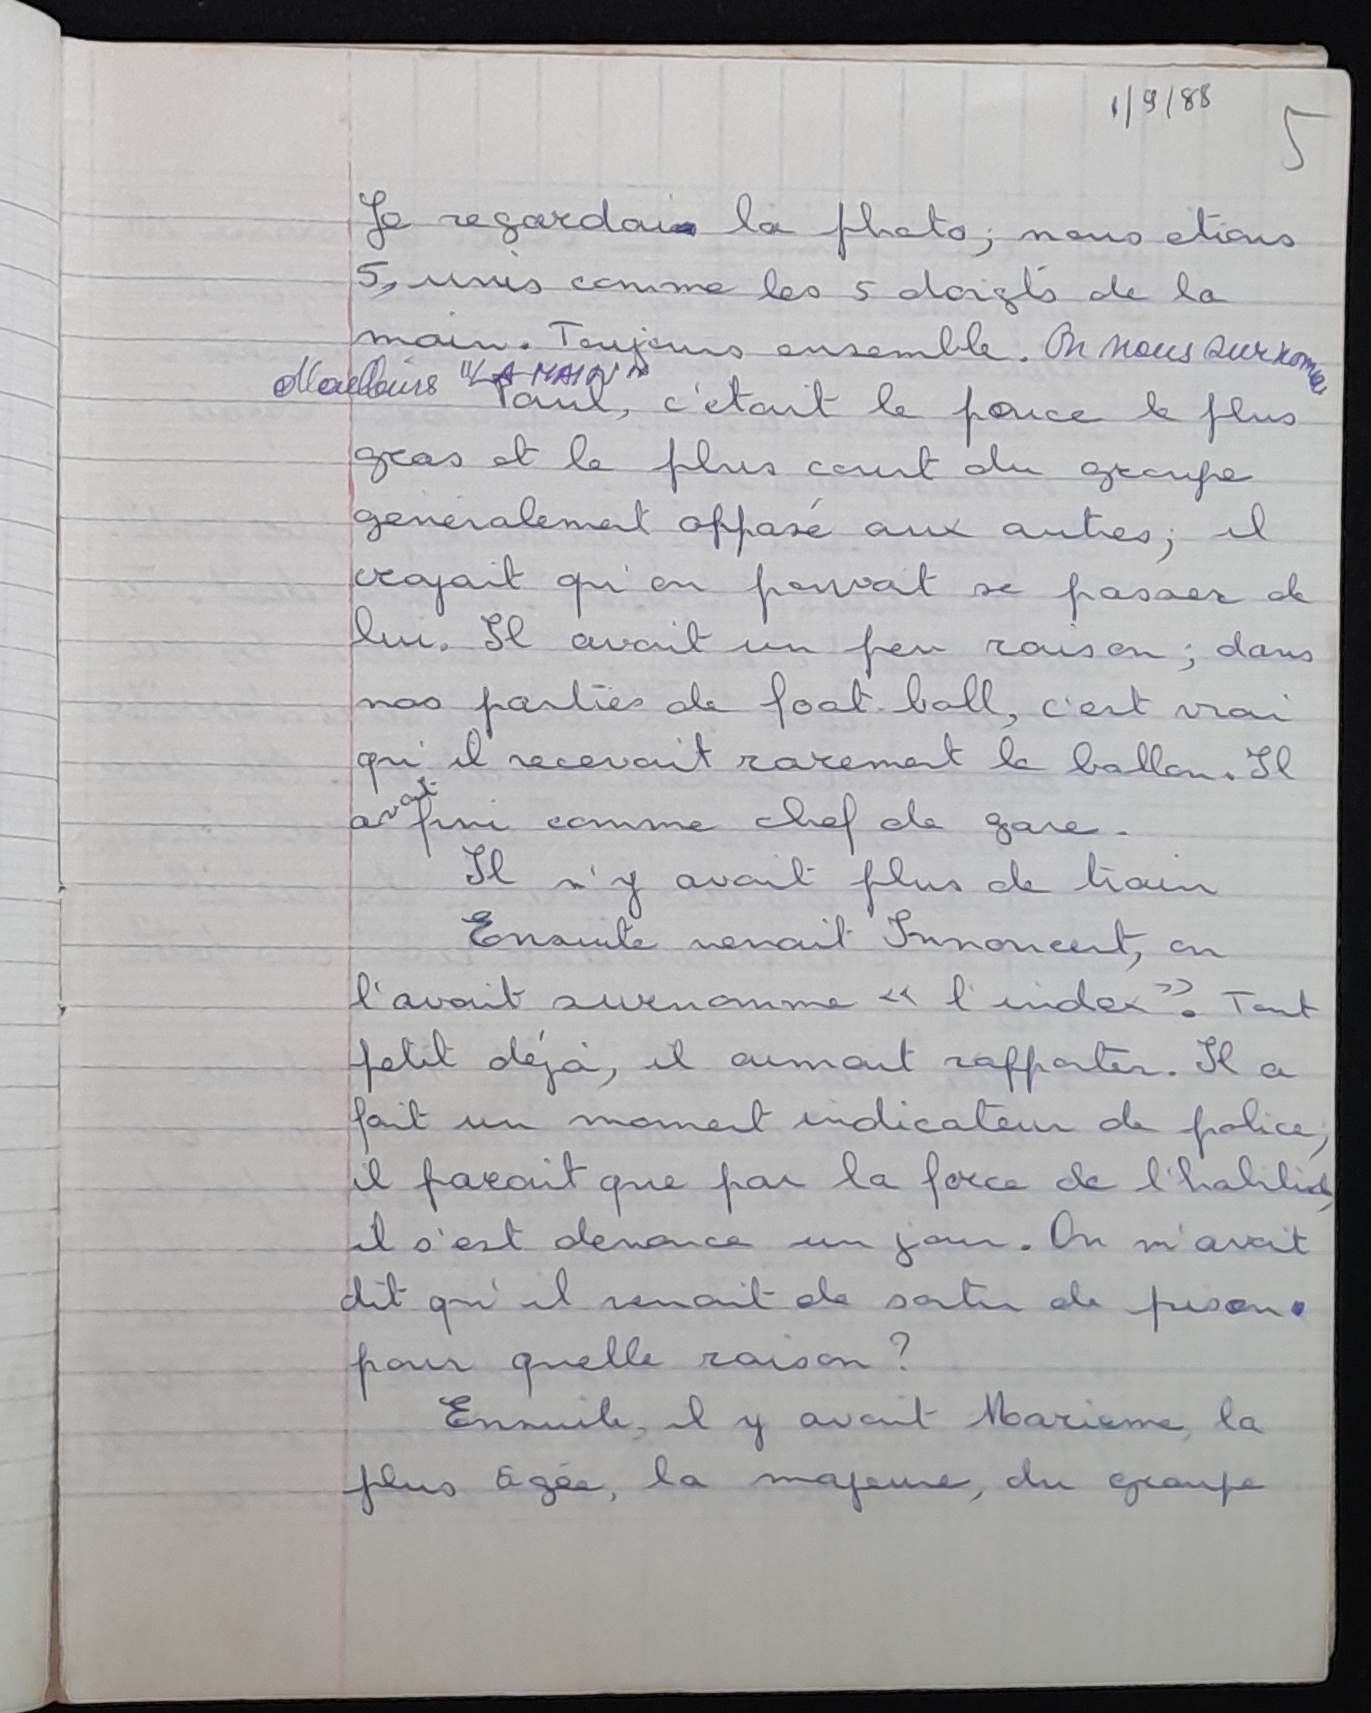 1/9/88
5
Je regardais la photo; nous etions
5, unis comme les 5 doigts de la
main. Toujours ensemble. On nous surnomme
d'ailleurs "LA MAIN"
Paul, c'était le pouce le plus
gros et le plus court du groupe
généralement opposé aux autres; il
croyait qu'on pouvait se passer de
lui. Il avait un peu raison; dans
nos parties de foot-ball, c'est vrai
qu'il recevait rarement le ballon. Il
avait fini comme chef de gare.
Il n'y avait plus de train
Ensuite venait Innoncent, on
l'avait surnomme « l'index ». Tout
petit déjà, il aimait rapporter. Il a
fait un moment indicateur de police,
il parait que par la force de l'habitude,
il s'est denonce un jour. On m'avait
dit qu'il venait de sortir de prison.
pour quelle raison ?
Ensuite, il y avait Marieme, la
plus âgée, la majeure, du groupe